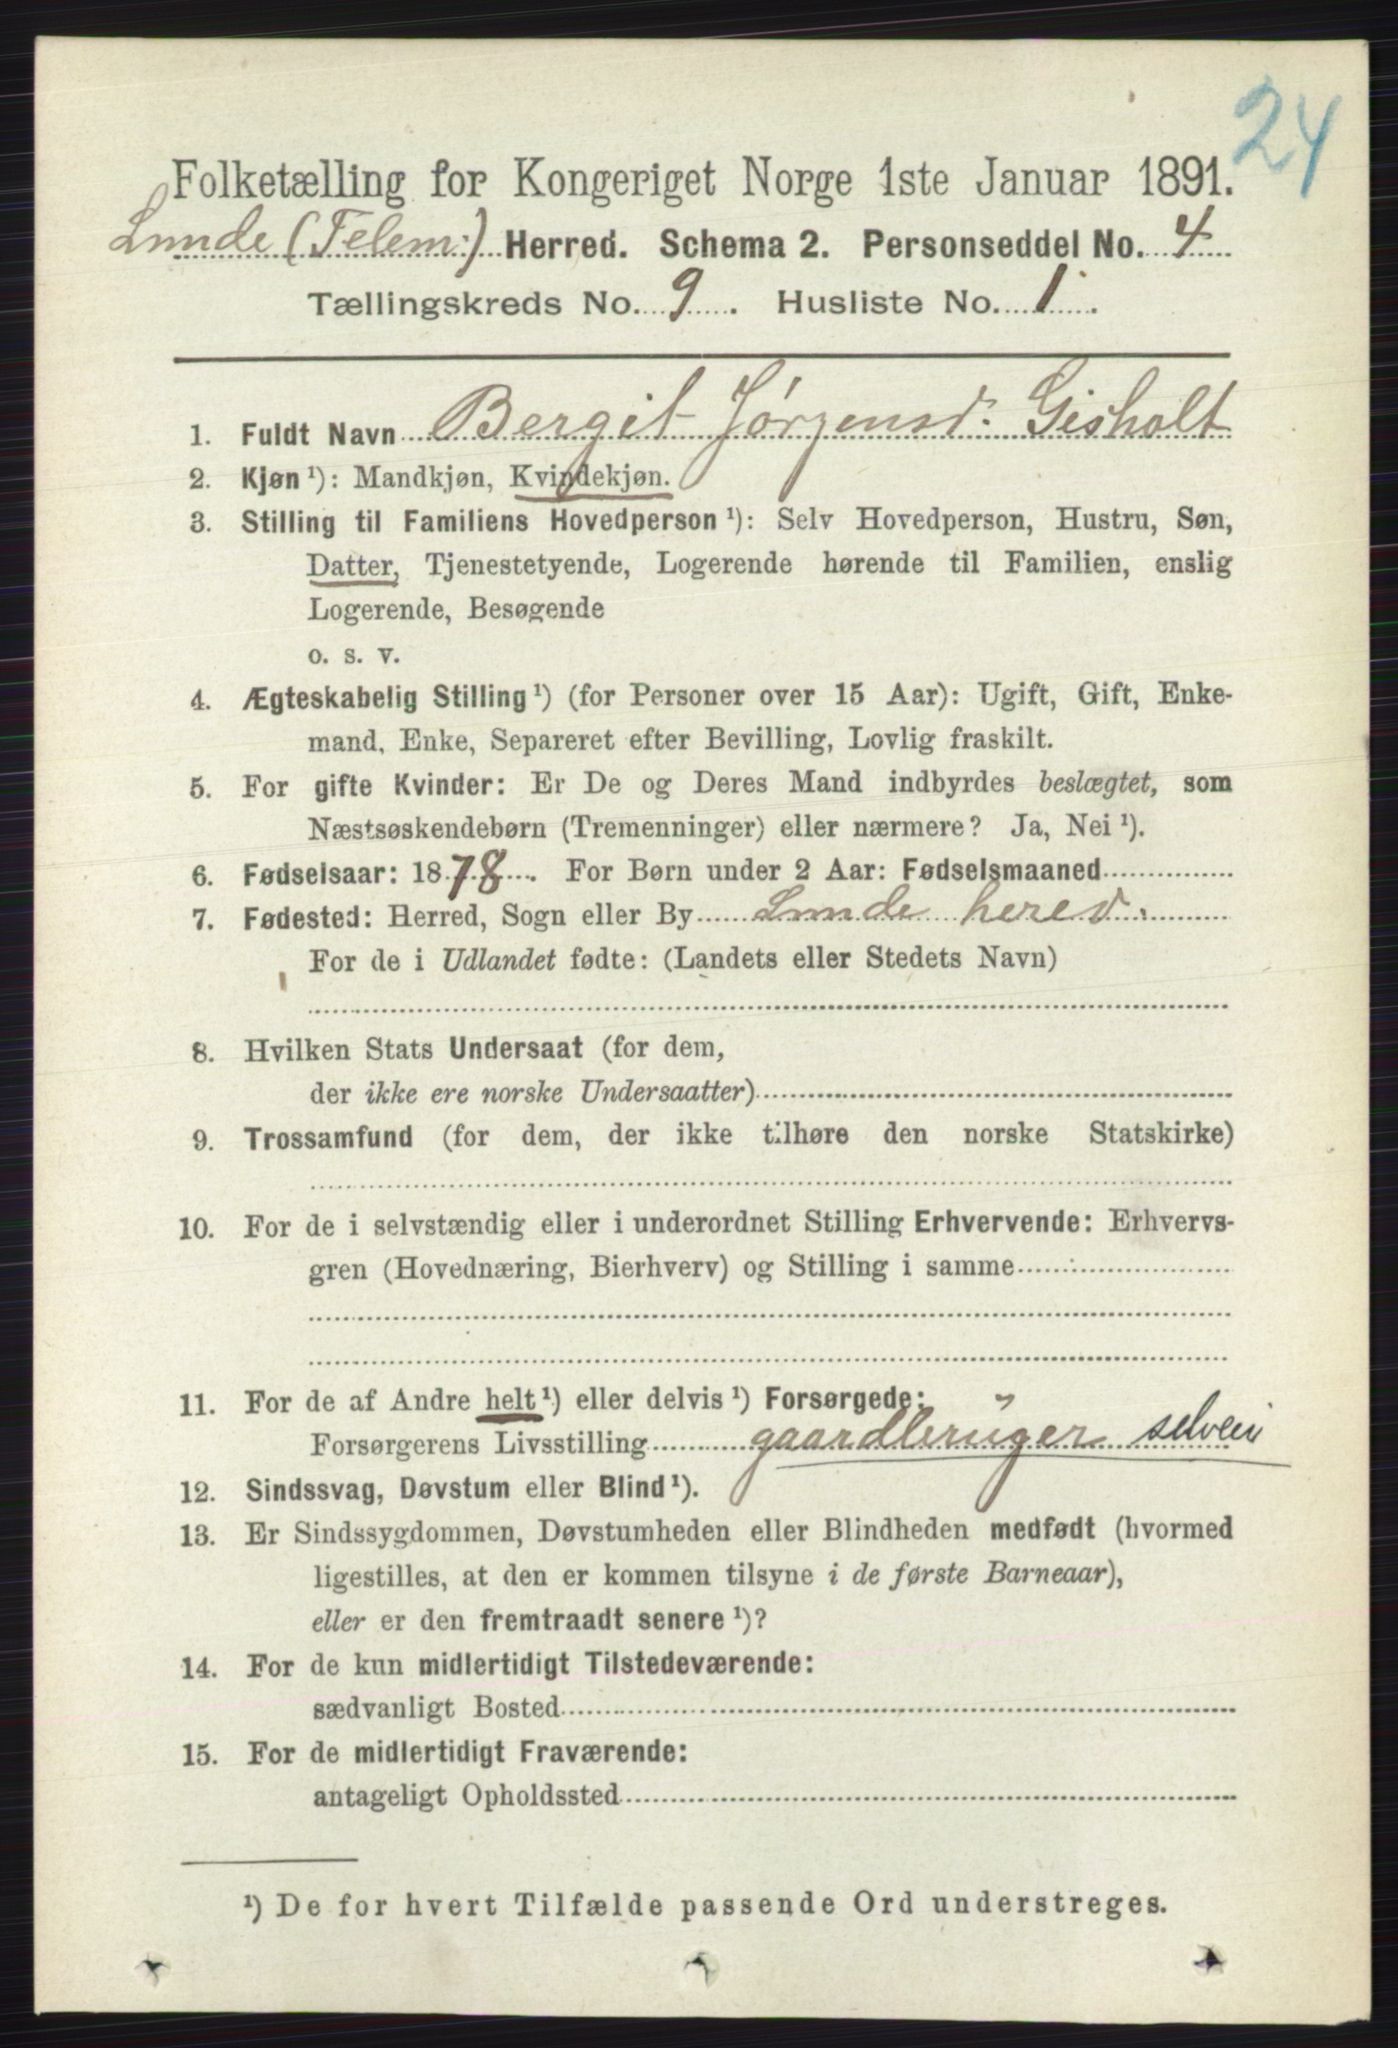 24
Folketælling for Kongeriget Norge 1ste Januar 1891.
Lunde (Telem:) Herred. Schema 2. Personseddel No. 4
Tællingskreds No. 9. Husliste No. 1.
1. Fuldt Navn Bergit Jörgensd: Gisholt
2. Kjøn ¹): Mandkjøn, Kvindekjøn.
3. Stilling til Familiens Hovedperson ¹): Selv Hovedperson, Hustru, Søn,
Datter, Tjenestetyende, Logerende hørende til Familien, enslig
Logerende, Besøgende
o. s. v.
4. Ægteskabelig Stilling ¹) (for Personer over 15 Aar): Ugift, Gift, Enke-
mand, Enke, Separeret efter Bevilling, Lovlig fraskilt.
5. For gifte Kvinder: Er De og Deres Mand indbyrdes beslægtet, som
Næstsøskendebørn (Tremenninger) eller nærmere? Ja, Nei ¹).
6. Fødselsaar: 1878. For Børn under 2 Aar: Fødselsmaaned
7. Fødested: Herred, Sogn eller By Lunde hered.
For de i Udlandet fødte: (Landets eller Stedets Navn)
8. Hvilken Stats Undersaat (for dem,
der ikke ere norske Undersaatter)
9. Trossamfund (for dem, der ikke tilhøre den norske Statskirke)
10. For de i selvstændig eller i underordnet Stilling Erhvervende: Erhvervs-
gren (Hovednæring, Bierhverv) og Stilling i samme
11. For de af Andre helt ¹) eller delvis ¹) Forsørgede:
Forsørgerens Livsstilling gaardbrüger selveie
12. Sindssvag, Døvstum eller Blind ¹).
13. Er Sindssygdommen, Døvstumheden eller Blindheden medfødt (hvormed
ligestilles, at den er kommen tilsyne i de første Barneaar),
eller er den fremtraadt senere ¹)?
14. For de kun midlertidigt Tilstedeværende:
sædvanligt Bosted
15. For de midlertidigt Fraværende:
antageligt Opholdssted
¹) De for hvert Tilfælde passende Ord understreges.